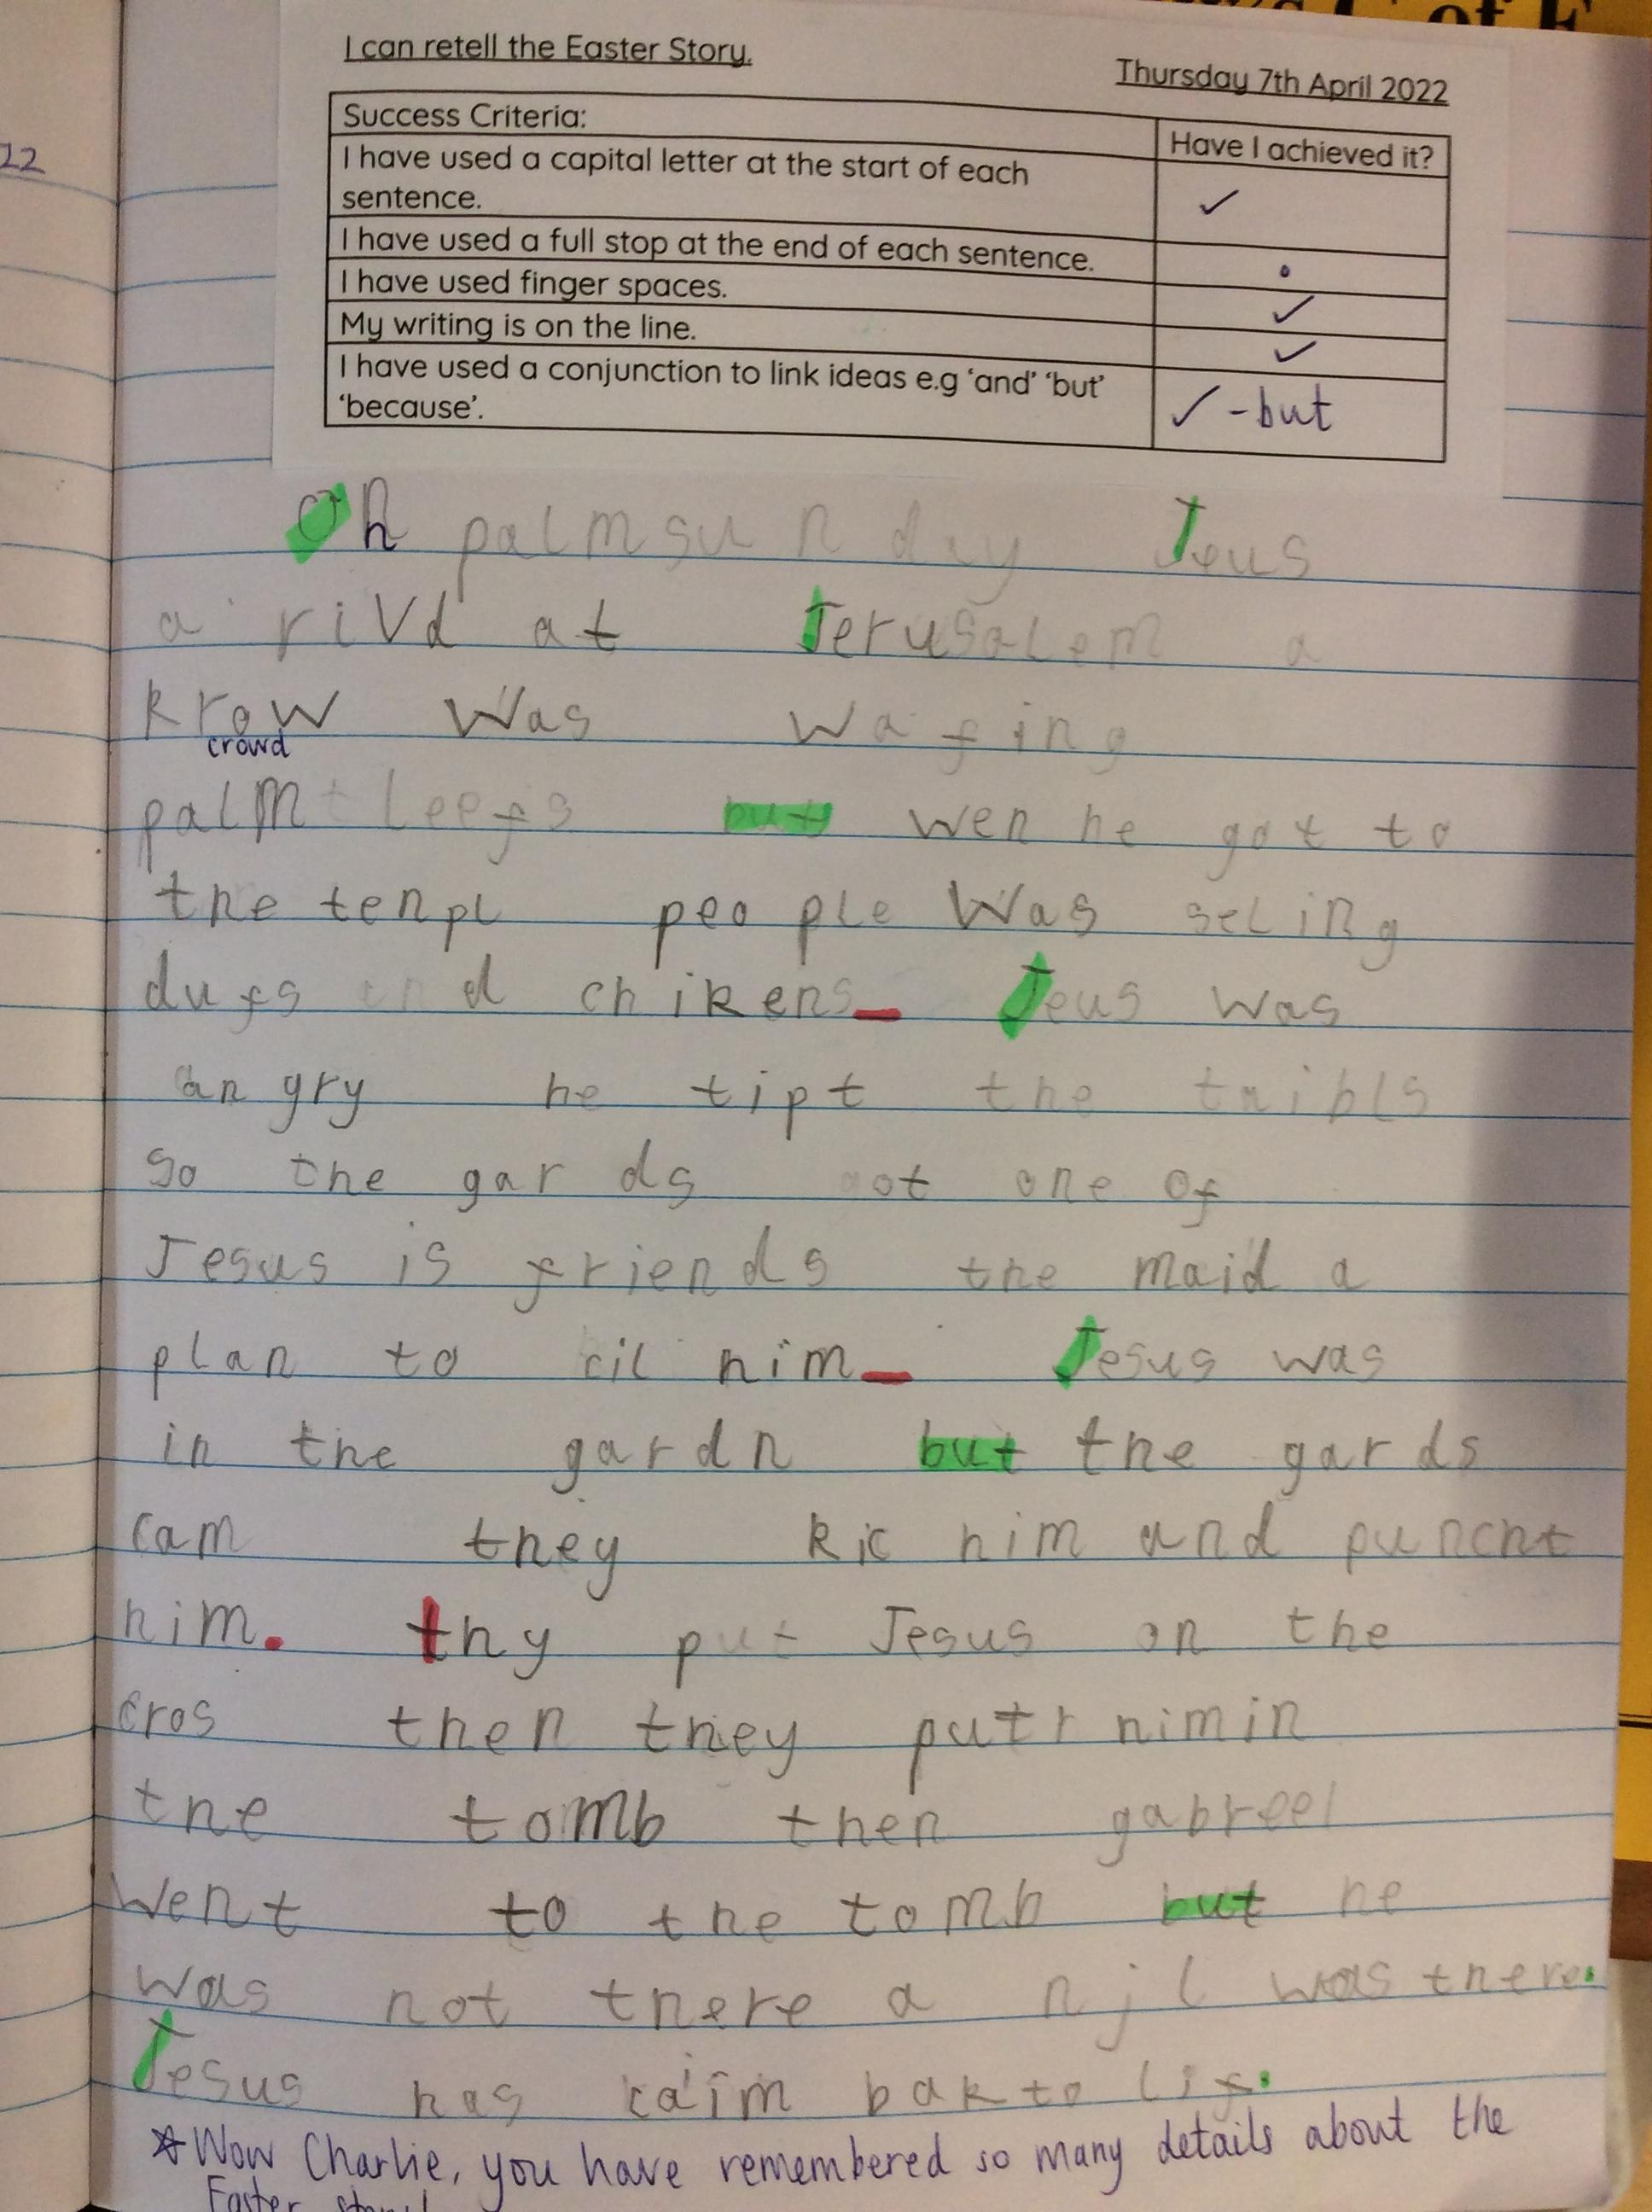 C of E
I can retell the Easter Story.
Thursday 7th April 2022
22
Success Criteria:
Have I achieved it?
I have used a capital letter at the start of each
sentence.
✓
I have used a full stop at the end of each sentence.
•
I have used finger spaces.
✓
My writing is on the line.
✓
I have used a conjunction to link ideas e.g 'and' 'but'
'because'.
✓ - but
On palmsunday Jeus
a rivd at Jerusalem a
krow was wafing
crowd
palm leefs but wen he got to
the tenpl people was seling
dufs and chikens_ Jeus was
angry he tipt the taibls
so the gards got one of
Jesus is friends the maid a
plan to cil him_ Jesus was
in the gardn but the gards
cam they kic him and puncht
him. thy put Jesus on the
cros then they putr himin
the tomb then gabreel
went to the tomb but he
was not there a njl was there.
Jesus has caim bak to lif.
☆ Wow Charlie, you have remembered so many details about the
Easter story!